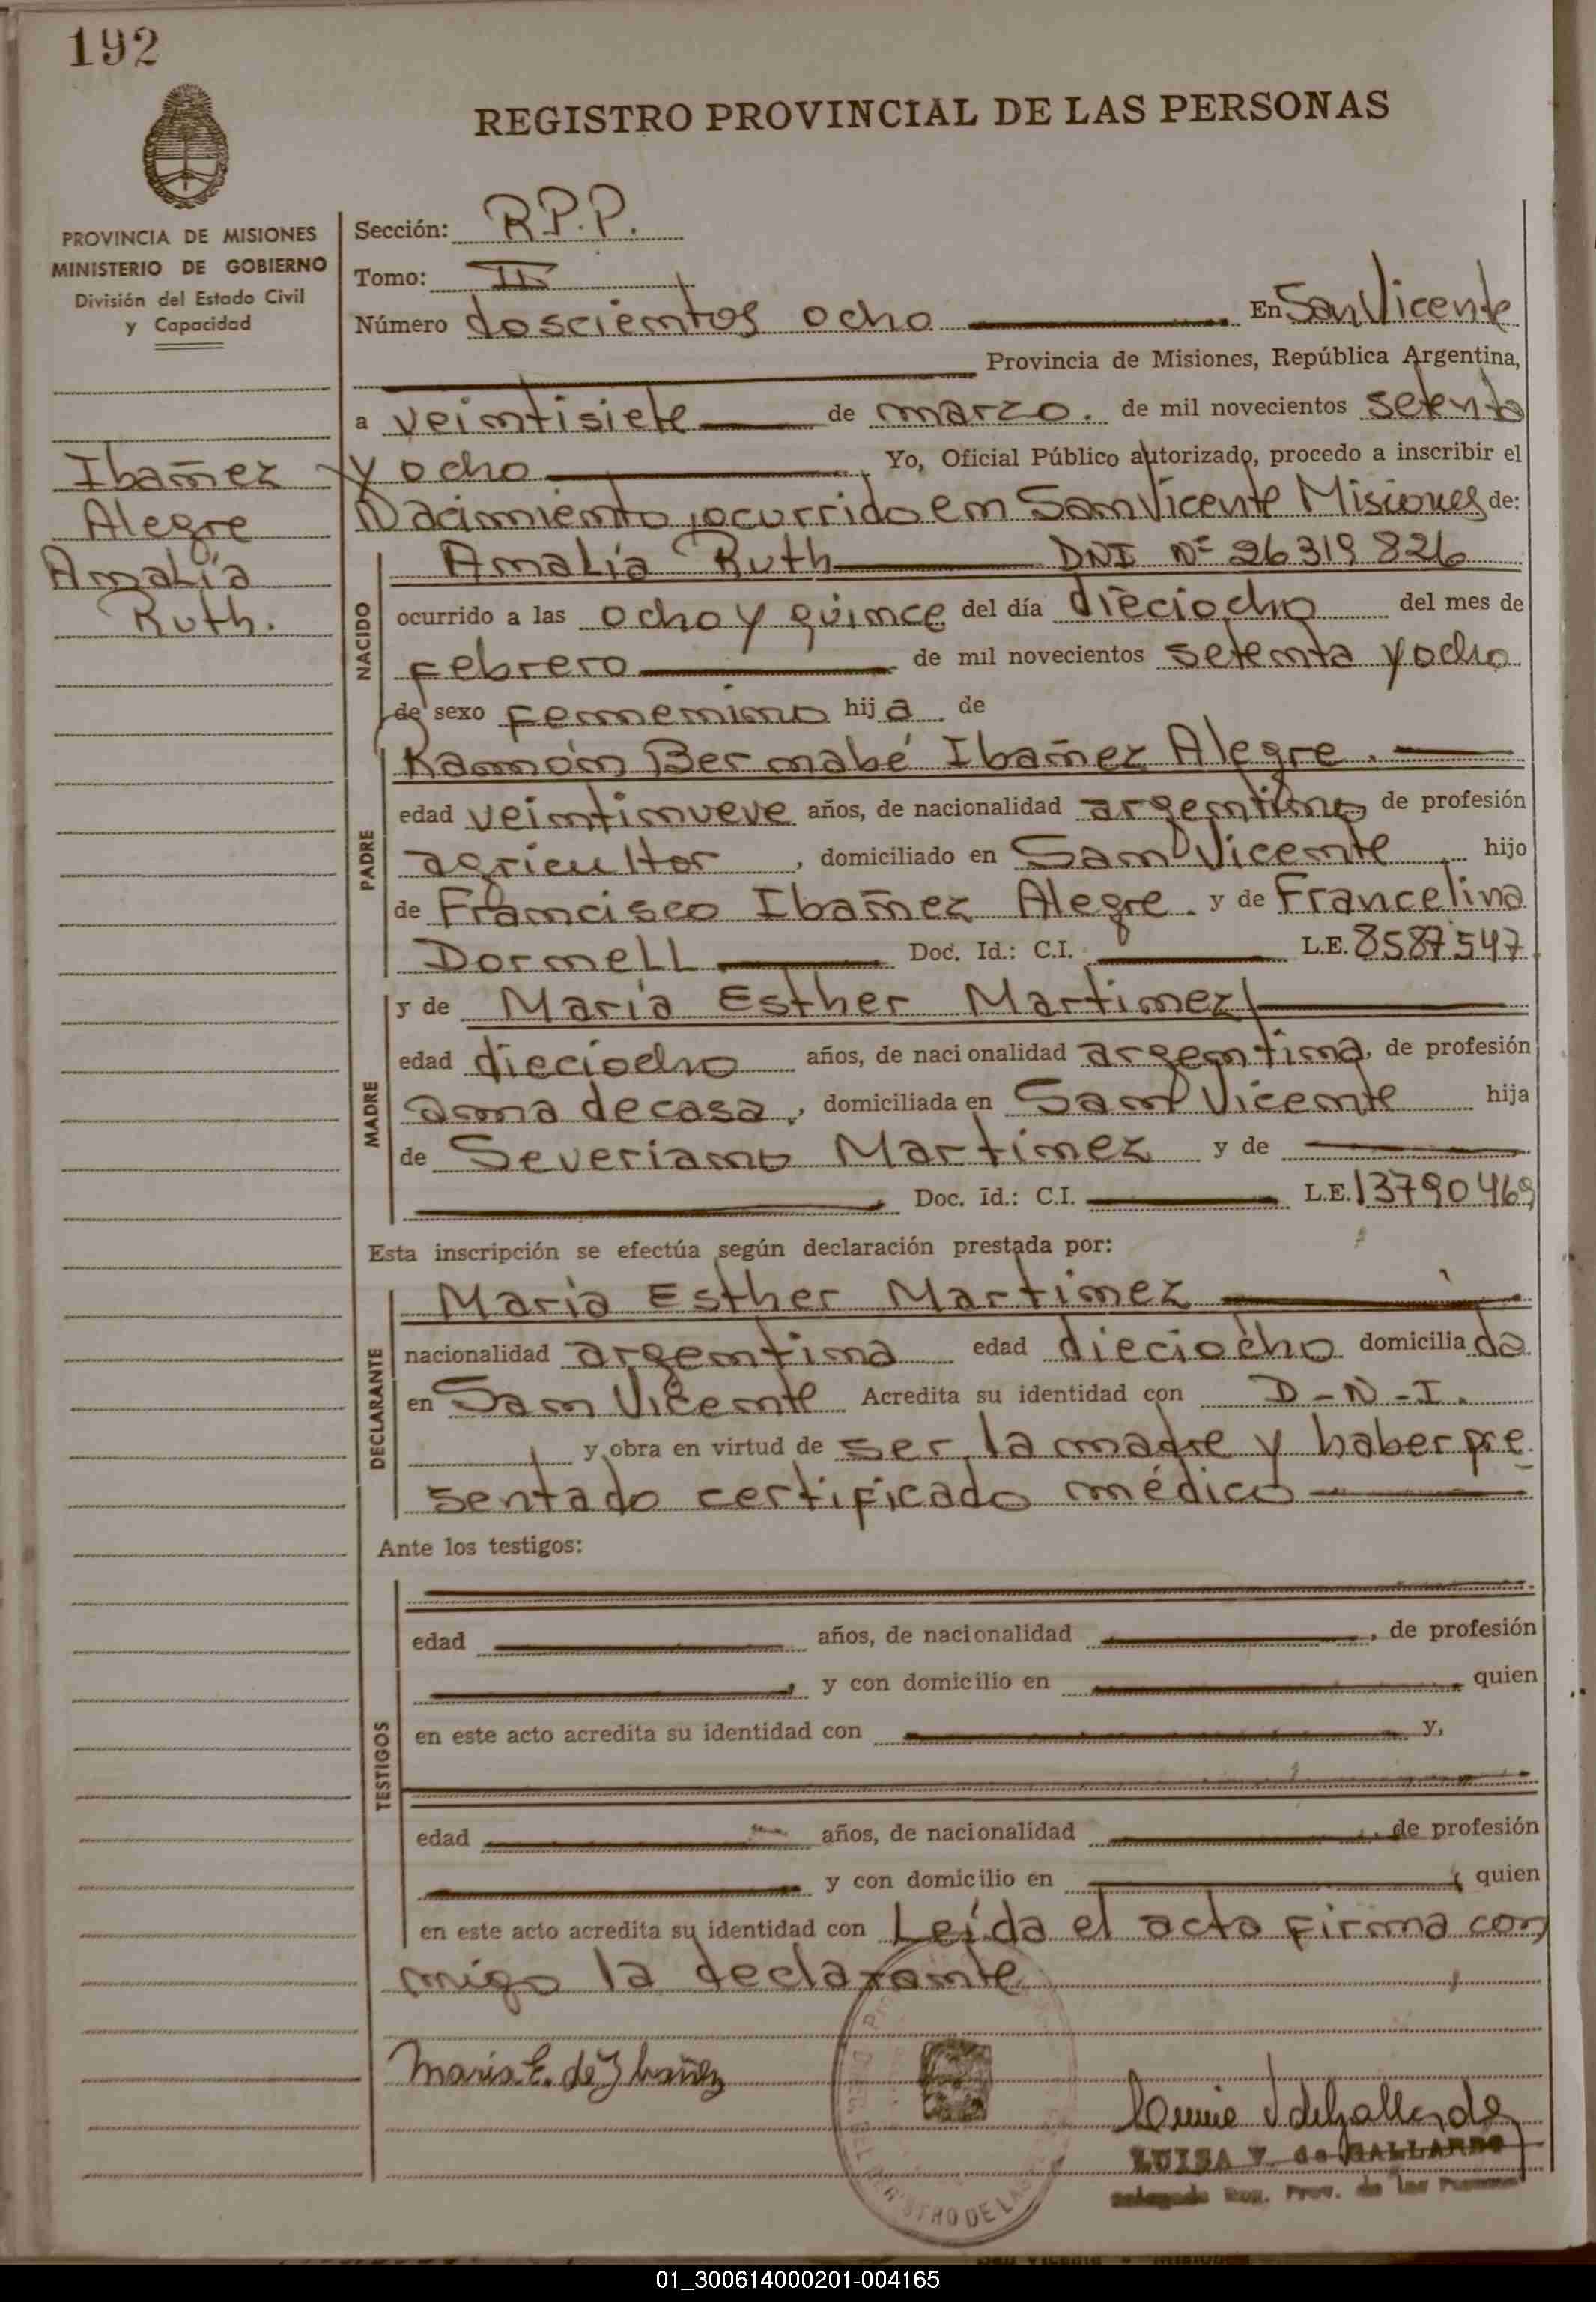 192
REGISTRO PROVINCIAL DE LAS PERSONAS
PROVINCIA DE MISIONES
MINISTERIO DE GOBIERNO
División del Estado Civil
y Capacidad
Ibañez
Alegre
Amalia
Ruth.
Sección: R.P.P.
Tomo: II
Número doscientos ocho En San Vicente
Provincia de Misiones, República Argentina,
a veintisiete de marzo. de mil novecientos setenta
y ocho Yo, Oficial Público autorizado, procedo a inscribir el
Nacimiento, ocurrido en San Vicente Misiones de:
NACIDO
Amalia Ruth DNI Nº 26319826
ocurrido a las ocho y quince del día dieciocho del mes de
febrero de mil novecientos setenta y ocho
de sexo femenino hija de
PADRE
Ramón Bernabé Ibañez Alegre.
edad veintinueve años, de nacionalidad argentino, de profesión
agricultor, domiciliado en San Vicente hijo
de Francisco Ibañez Alegre. y de Francelina
Dornell Doc. Id.: C.I. L.E. 8587547
MADRE
y de María Esther Martinez
edad dieciocho años, de nacionalidad argentina, de profesión
ama de casa, domiciliada en San Vicente hija
de Severiano Martinez y de
Doc. Id.: C.I. L.E. 13790469
Esta inscripción se efectúa según declaración prestada por:
DECLARANTE
María Esther Martinez
nacionalidad argentina edad dieciocho domiciliada
en San Vicente Acredita su identidad con D-N-I.
y obra en virtud de ser la madre y haber pre
sentado certificado médico
Ante los testigos:
TESTIGOS
edad años, de nacionalidad, de profesión
y con domicilio en quien
en este acto acredita su identidad con y,
edad años, de nacionalidad, de profesión
y con domicilio en quien
en este acto acredita su identidad con Leída el acta firma con
migo la declarante
Maria E. de Ibañez
LUISA V. de GALLARDO
Delegada Reg. Prov. de las Personas
REGISTRO DE LAS
01_300614000201-004165